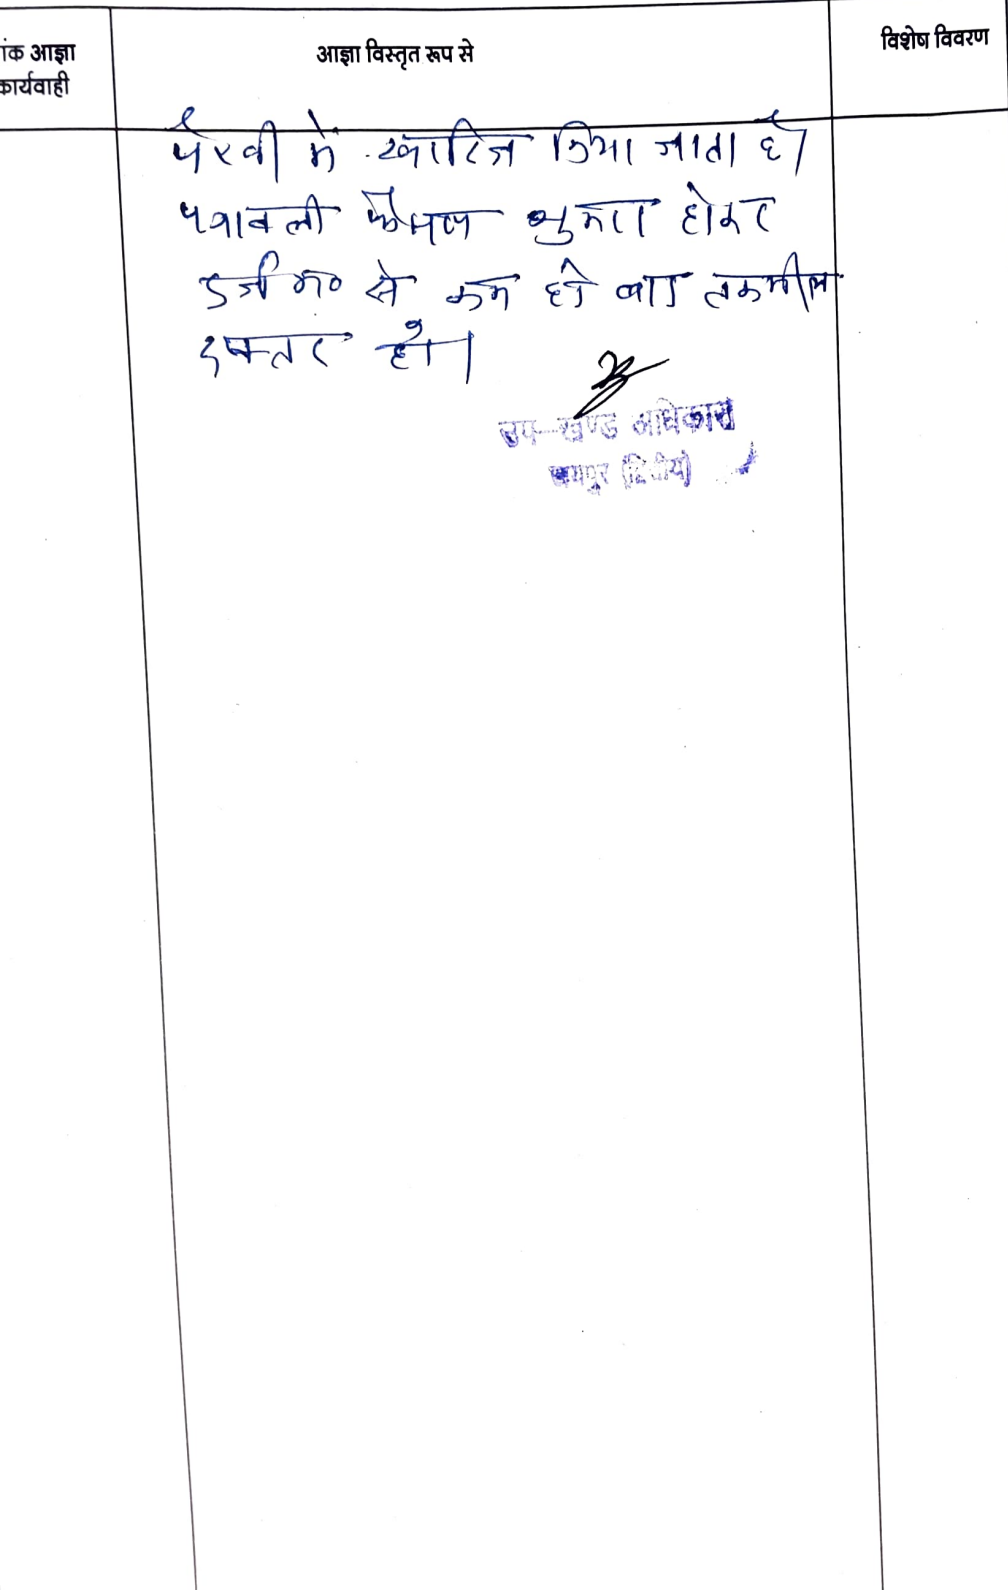 ांक आज्ञा
कार्यवाही
आज्ञा विस्तृत रूप से
विशेष विवरण
पैरवी में खारिज किया जाता है।
पत्रावली फैसल शुमार होकर
दर्ज न० से कम हो बाद तकमील
दफ्तर हो।
उप-खण्ड अधिकारी
जयपुर (द्वितीय)